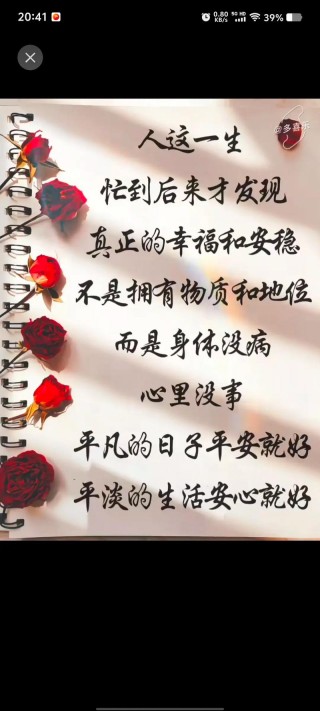 20:41
0.80 KB/s
5G HD
39%
@多喜乐
人这一生
忙到后来才发现
真正的幸福和安稳
不是拥有物质和地位
而是身体没病
心里没事
平凡的日子平安就好
平淡的生活安心就好